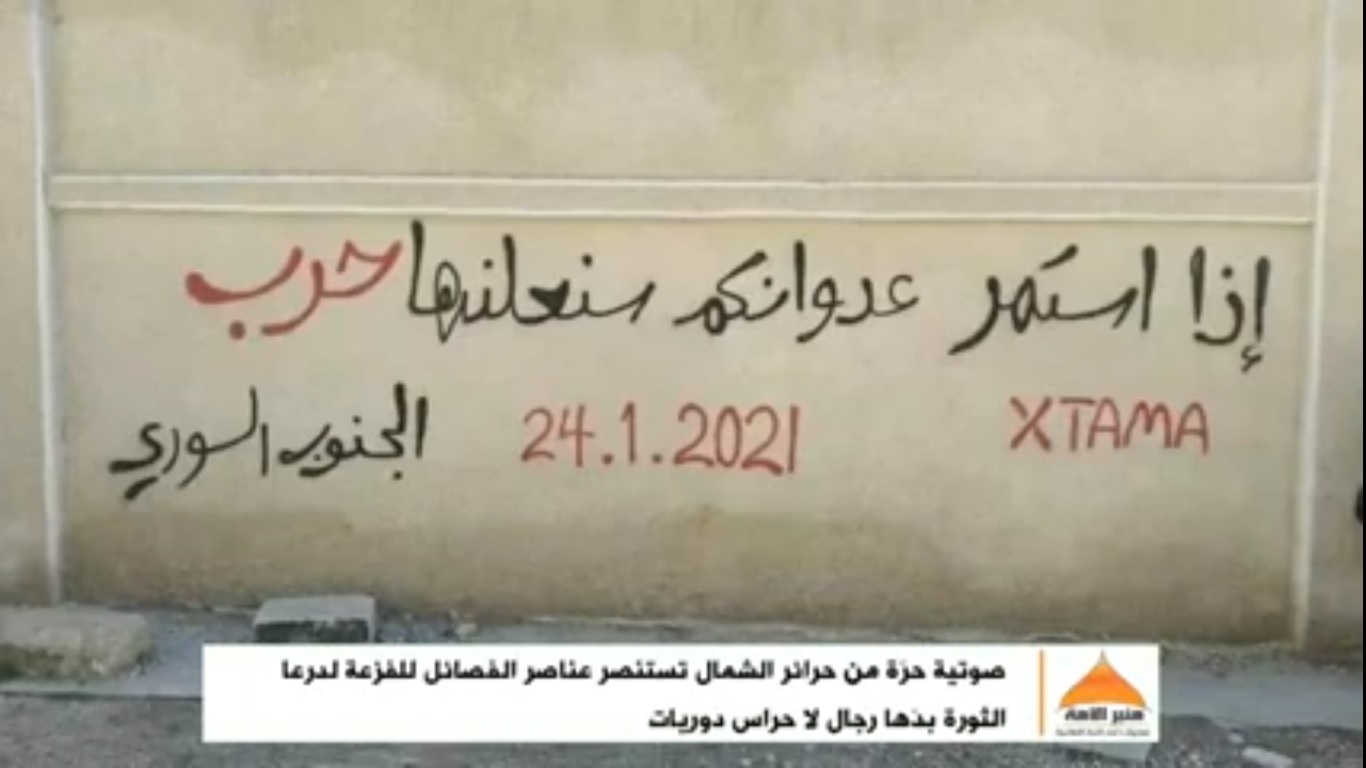 إذا استمر عدوانكم سنعلنها حرب
XTAMA 24.1.2021 الجنوب السوري
صوتية حرّة من حرائر الشمال تستنصر عناصر الفصائل للفزعة لدرعا
الثورة بدّها رجال لا حراس دوريات
منبر الأمة